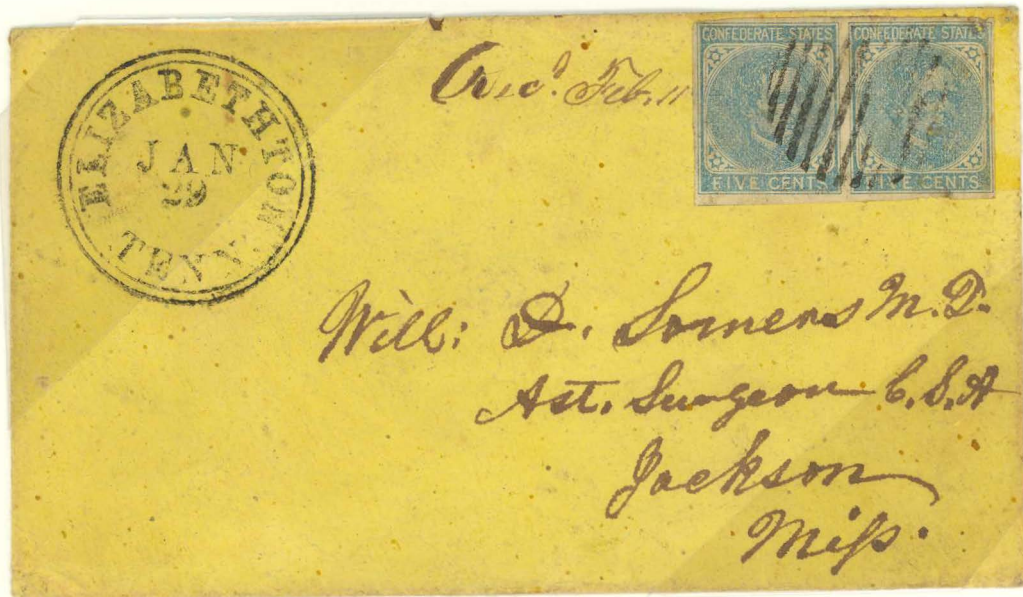 ELIZABETHTON TENN.
JAN
29
Recd. Feb. 11
CONFEDERATE STATES
FIVE CENTS
CONFEDERATE STATES
FIVE CENTS
Will: D. Somers M.D.
Ast. Surgeon C.S.A
Jackson
Miſs.